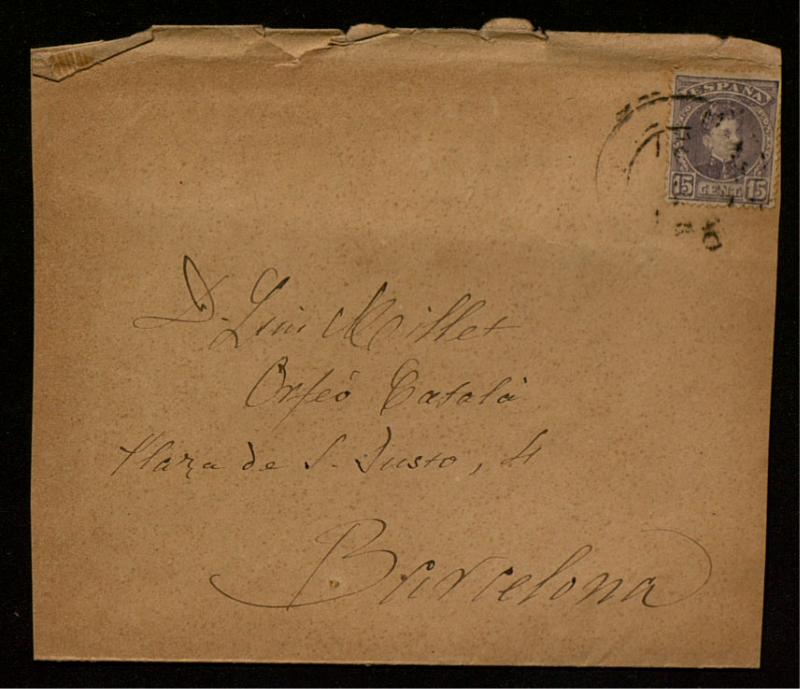 ESPAÑA
15 CENT 15
D. Luis Millet
Orfeó Català
Plaza de S. Justo, 4
Barcelona